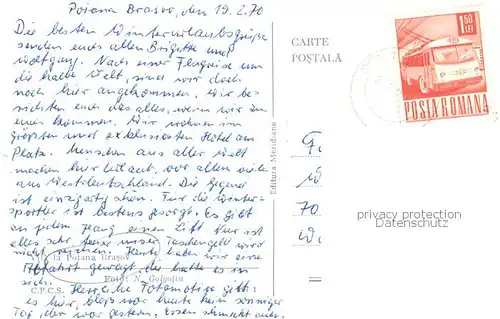 Poiana Brasov, den 19.2.70
Die besten Winterurlaubsgrüße
senden euch allen Brigitte und
Wolfgang. Nach einer Flugreise um
die halbe Welt, sind wir doch
noch hier angekommen. Wir be-
richten euch das alles, wenn wir zu
euch kommen. Wir wohnen im
größten und exklusivsten Hotel am
Platz. Menschen aus aller Welt
machen hier Urlaub, vor allem viele
aus Westdeutschland. Die Gegend
ist einzigartig schön. Für die Winter-
sportler ist bestens gesorgt. Es gibt
an jedem Hang einen Lift. Nur ist
alles sehr teuer unser Taschengeld wird
nicht reichen. Heute haben wir eine
Abfahrt gewagt die hatte es in
sich. Herrliche Fotomotive gibt
es hier, bloß war heute kein sonniger
Tag der war gestern. Essen schmeckt auch.
la Poiana Brașov
Foto: N.
C.P.C.S.
Editura Meridiane
CARTE
POȘTALĂ
1,50
LEI
POSTA ROMANA
70
privacy protection
Datenschutz